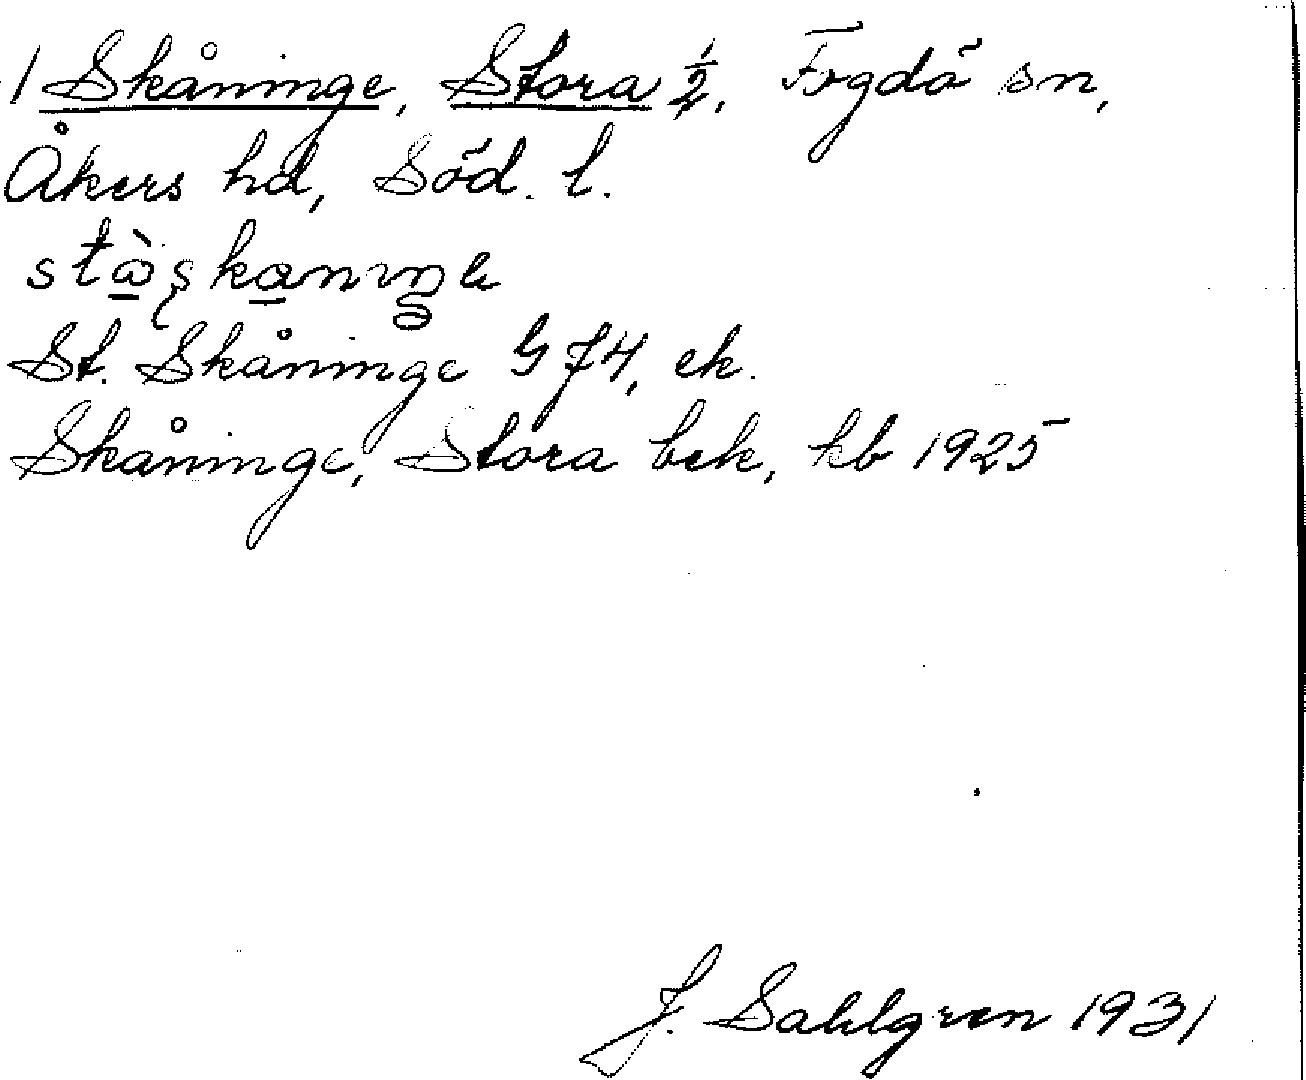 1 Skåninge, Stora ½, Fogdö sn,
Åkers hd, Söd. l.
St. Skåninge G 74, ek.
Skåninge, Stora bek, kb 1925
J. Sahlgren 1931